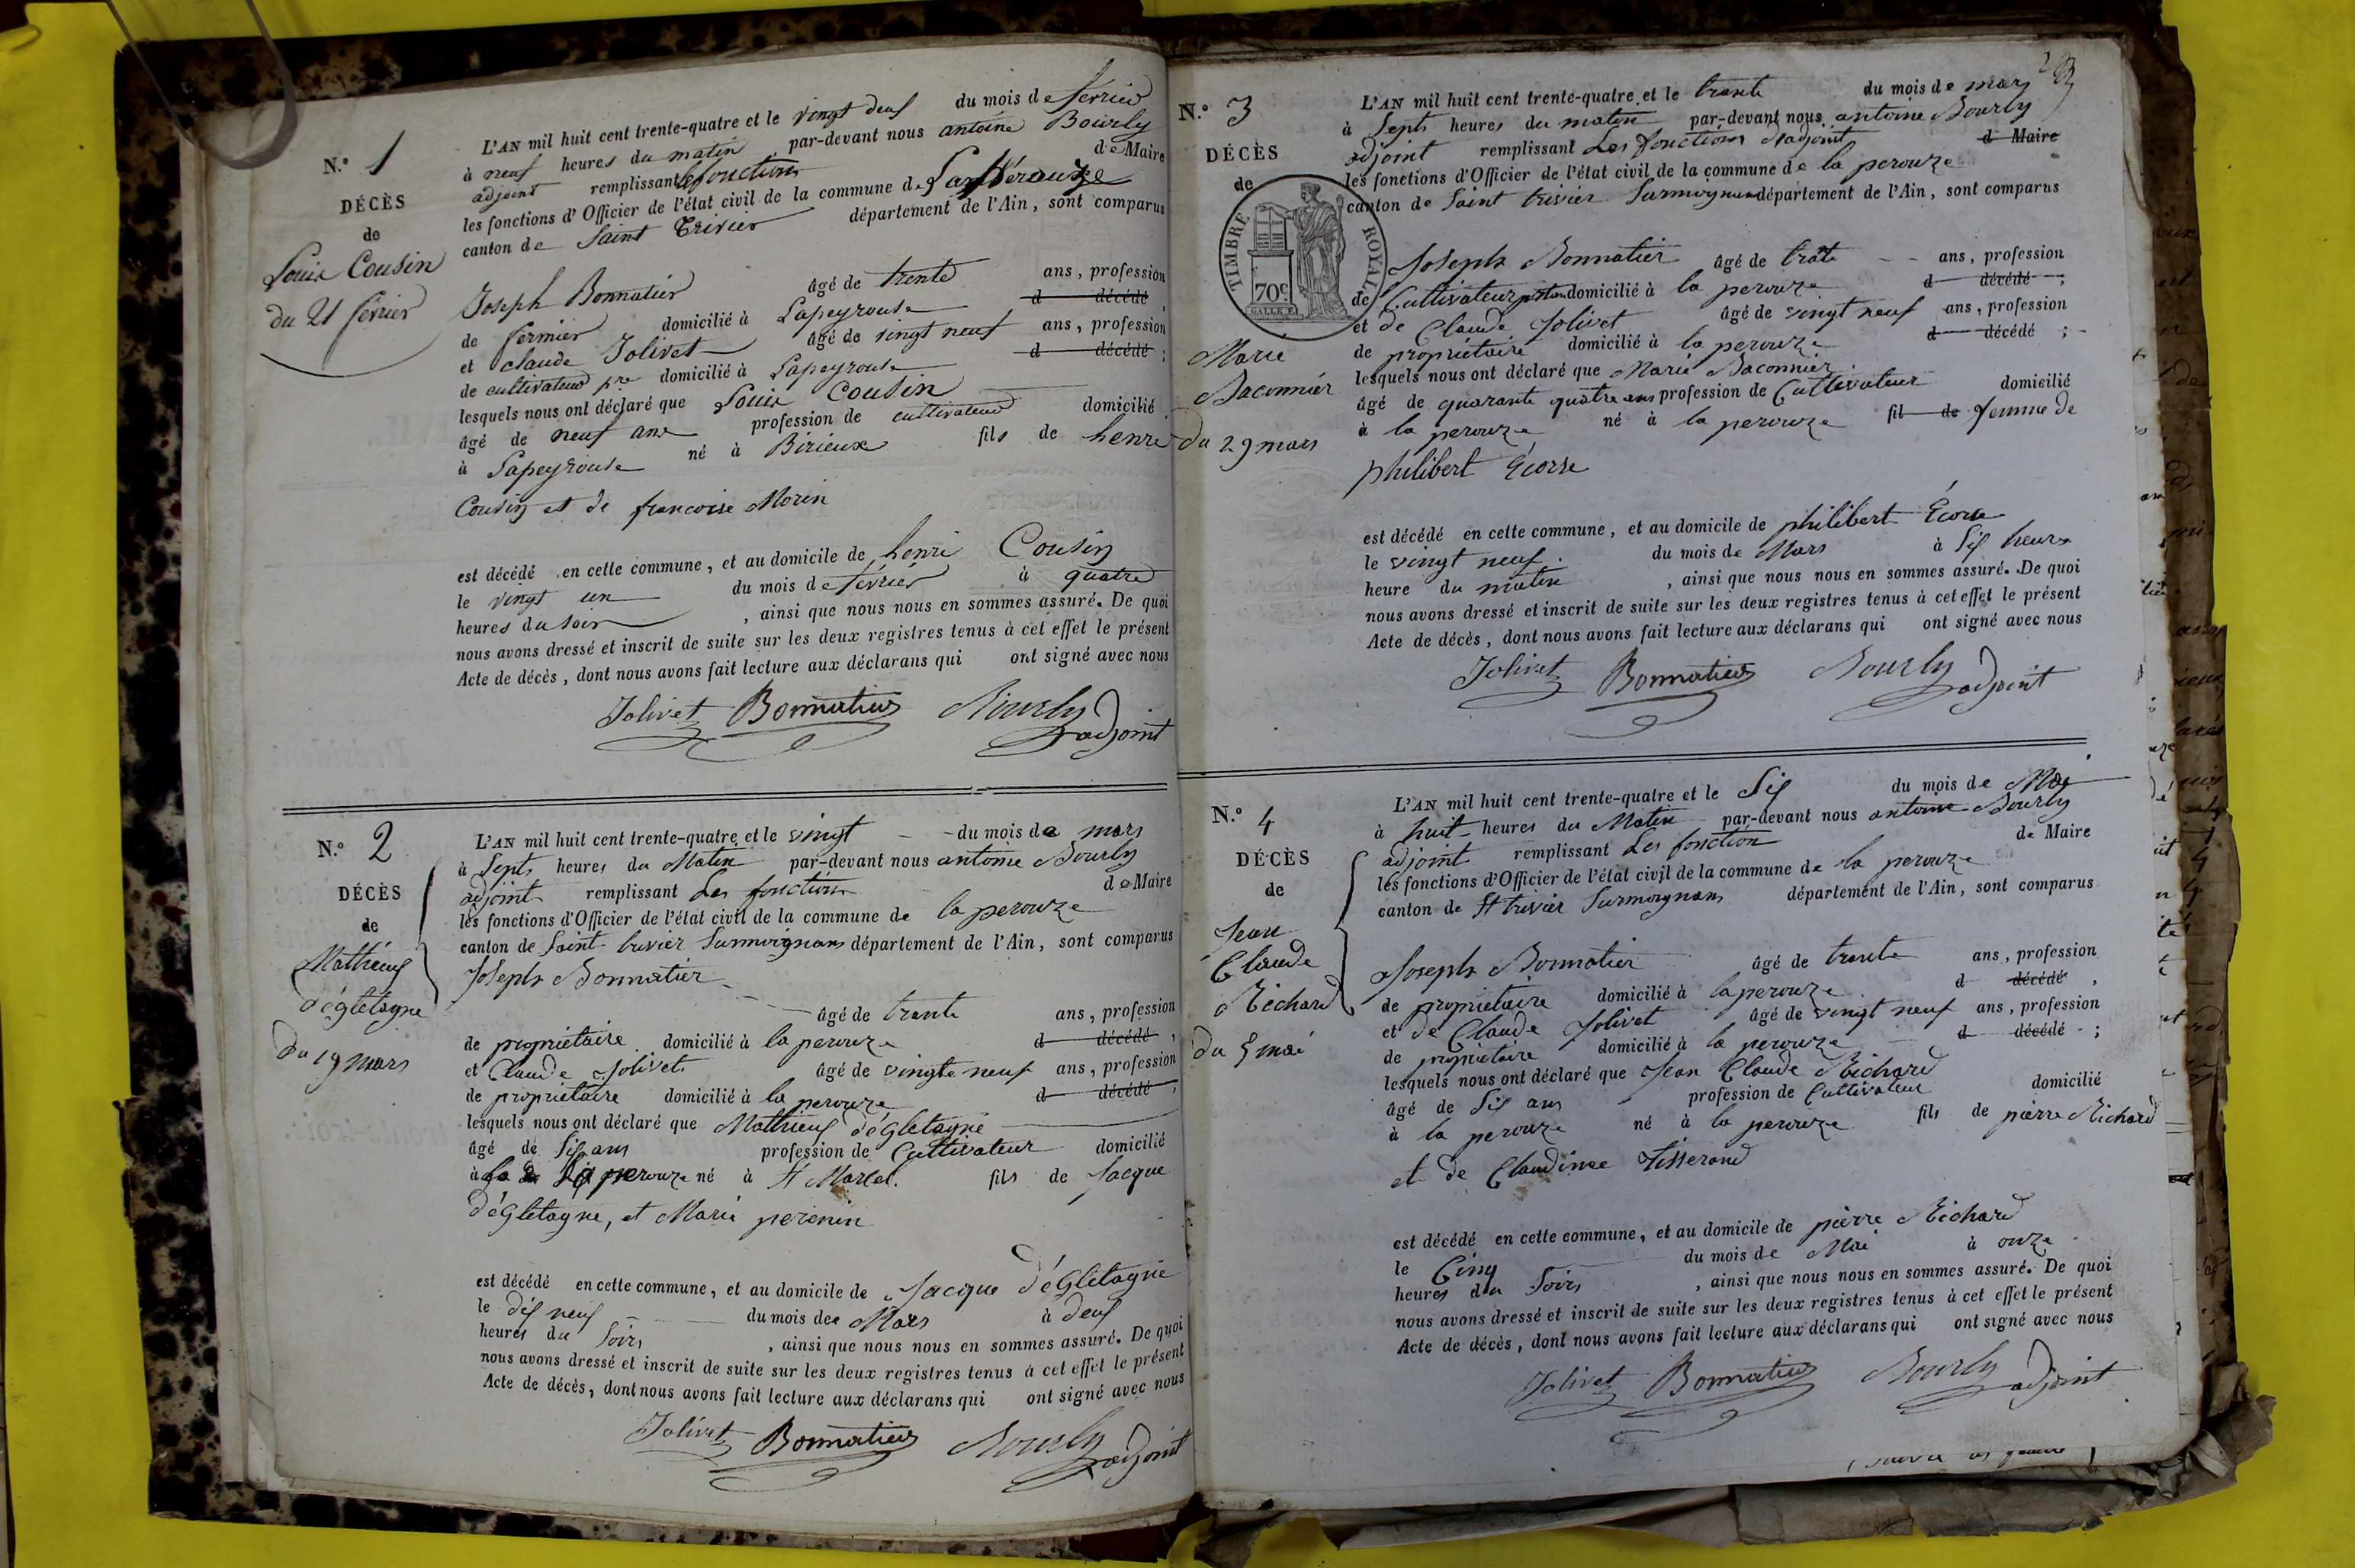 N.º 1
DÉCÈS
de
Louis Cousin
du 21 février
L'AN mil huit cent trente-quatre et le vingt deux du mois de février
à neuf heures du matin par-devant nous antoine Bourly
adjoint remplissant les fonctions de Maire
les fonctions d'Officier de l'état civil de la commune de
canton de Saint Trivier département de l'Ain, sont comparus
Joseph Bonnatier âgé de trente ans, profession
de fermier domicilié à Lapeyrouse d décédé ,
et Claude Jolivet âgé de vingt neuf ans, profession
de cultivateur pre domicilié à Lapeyrouse d décédé ;
lesquels nous ont déclaré que Louis Cousin
âgé de neuf ans profession de cultivateur domicilié
à Lapeyrouse né à Birieux fils de henri
Cousin et de francoise Morin
est décédé en cette commune, et au domicile de henri Cousin
le vingt un du mois de février à quatre
heures du soir , ainsi que nous nous en sommes assuré. De quoi
nous avons dressé et inscrit de suite sur les deux registres tenus à cet effet le présent
Acte de décès, dont nous avons fait lecture aux déclarans qui ont signé avec nous
Jolivet Bonnatier Bourly adjoint
N.º 2
DÉCÈS
de
Mathieuf
d'égletagne
du 19 mars
L'AN mil huit cent trente-quatre et le vingt du mois de mars
à Septs heures du Matin par-devant nous antoine Bourly
adjoint remplissant Les fonctions de Maire
les fonctions d'Officier de l'état civil de la commune de la perouze
canton de Saint trivier Surmoignans département de l'Ain, sont comparus
Josepts Bonnatier
âgé de trante ans, profession
de propriétaire domicilié à la perouze d décédé ,
et Claude Jolivet âgé de vingte neuf ans, profession
de propriétaire domicilié à la perouze d décédé ,
lesquels nous ont déclaré que Mathieuf d'égletagne
âgé de Sis ans profession de Cultivateur domicilié
à la perouze né à St Marcel. fils de Jacque
d'égletagne, et Marie perenin
est décédé en cette commune, et au domicile de Jacque d'égletagne
le dis neuf du mois de Mars à deus
heures du Soirs , ainsi que nous nous en sommes assuré. De quoi
nous avons dressé et inscrit de suite sur les deux registres tenus à cet effet le présent
Acte de décès, dont nous avons fait lecture aux déclarans qui ont signé avec nous
Jolivet Bonnatier Bourly adjoint
N.º 3
DÉCÈS
de
TIMBRE ROYAL
70c
Marie
Baconnier
du 29 mars
L'AN mil huit cent trente-quatre et le trante du mois de mars
à Septs heures du matin par-devant nous antoine Bourly
adjoint remplissant Les fonctions d'adjoint d Maire
les fonctions d'Officier de l'état civil de la commune de la perouze
canton de Saint trivier Surmoignans département de l'Ain, sont comparus
Josepts Bonnatier âgé de trate ans, profession
de Cultivateur domicilié à la perouze d décédé ;
et de Claude Jolivet âgé de vingt neuf ans, profession
de propriétaire domicilié à la perouze d décédé ;
lesquels nous ont déclaré que Marie Baconnier
âgé de quarante quatre ans profession de Cultivateur domicilié
à la perouze né à la perouze fil de femme de
philibert Écorse
est décédé en cette commune, et au domicile de philibert Écorse
le vingt neuf du mois de Mars à Sis heures
heure du matin , ainsi que nous nous en sommes assuré. De quoi
nous avons dressé et inscrit de suite sur les deux registres tenus à cet effet le présent
Acte de décès, dont nous avons fait lecture aux déclarans qui ont signé avec nous
Jolivet Bonnatier Bourly adjoint
N.º 4
DÉCÈS
de
Jean
Claude
Richard
du 5 mai
L'AN mil huit cent trente-quatre et le Sis du mois de Mai
à huit heures du Matin par-devant nous antoine Bourly
adjoint remplissant Les fonction de Maire
les fonctions d'Officier de l'état civil de la commune de la perouze
canton de St trivier Surmoignans département de l'Ain, sont comparus
Josepts Bonnatier âgé de trante ans, profession
de propriétaire domicilié à la perouze d décédé ,
et de Claude Jolivet âgé de vingt neuf ans, profession
de propriétaire domicilié à la perouze d décédé ;
lesquels nous ont déclaré que Jean Claude Richard
âgé de Sis ans profession de Cultivateur domicilié
à la perouze né à la perouze fils de pierre Richard
et de Claudinee Tisserand
est décédé en cette commune, et au domicile de pierre Richard
le Cinq du mois de Mai à onze
heures du Soirs , ainsi que nous nous en sommes assuré. De quoi
nous avons dressé et inscrit de suite sur les deux registres tenus à cet effet le présent
Acte de décès, dont nous avons fait lecture aux déclarans qui ont signé avec nous
Jolivet Bonnatier Bourly adjoint